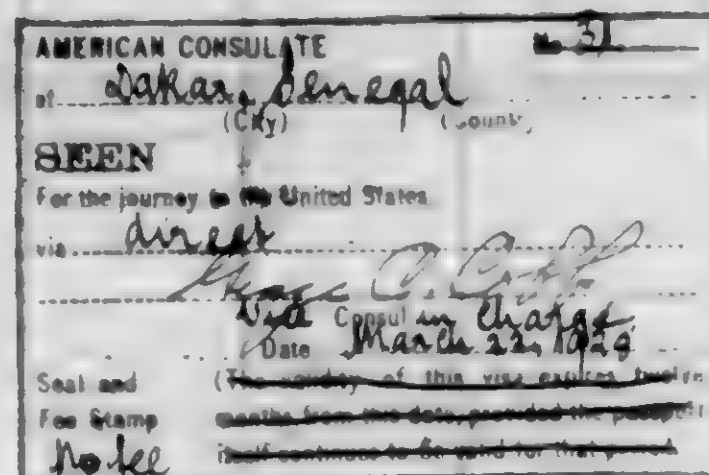 AMERICAN CONSULATE No. 31
at Dakar, Senegal
(City) (Country)
SEEN
For the journey to the United States
via direct
George
Vice Consul in Charge
Date March 22, 1929
Seal and (The validity of this visa expires twelve
Fee Stamp months from this date, provided the passport
No fee itself continues to be valid for that period